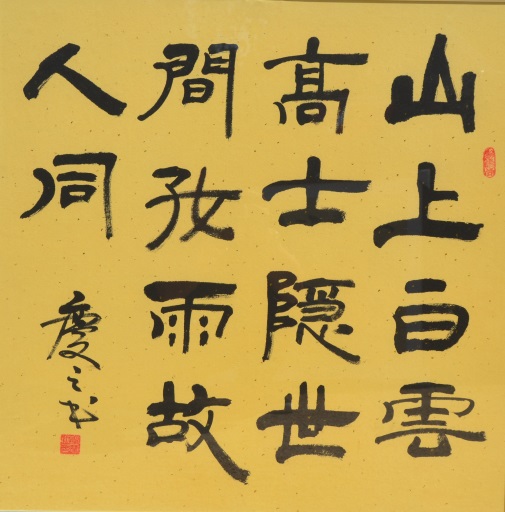 山上白雲
髙士隱世
間好雨故
人同
慶之书